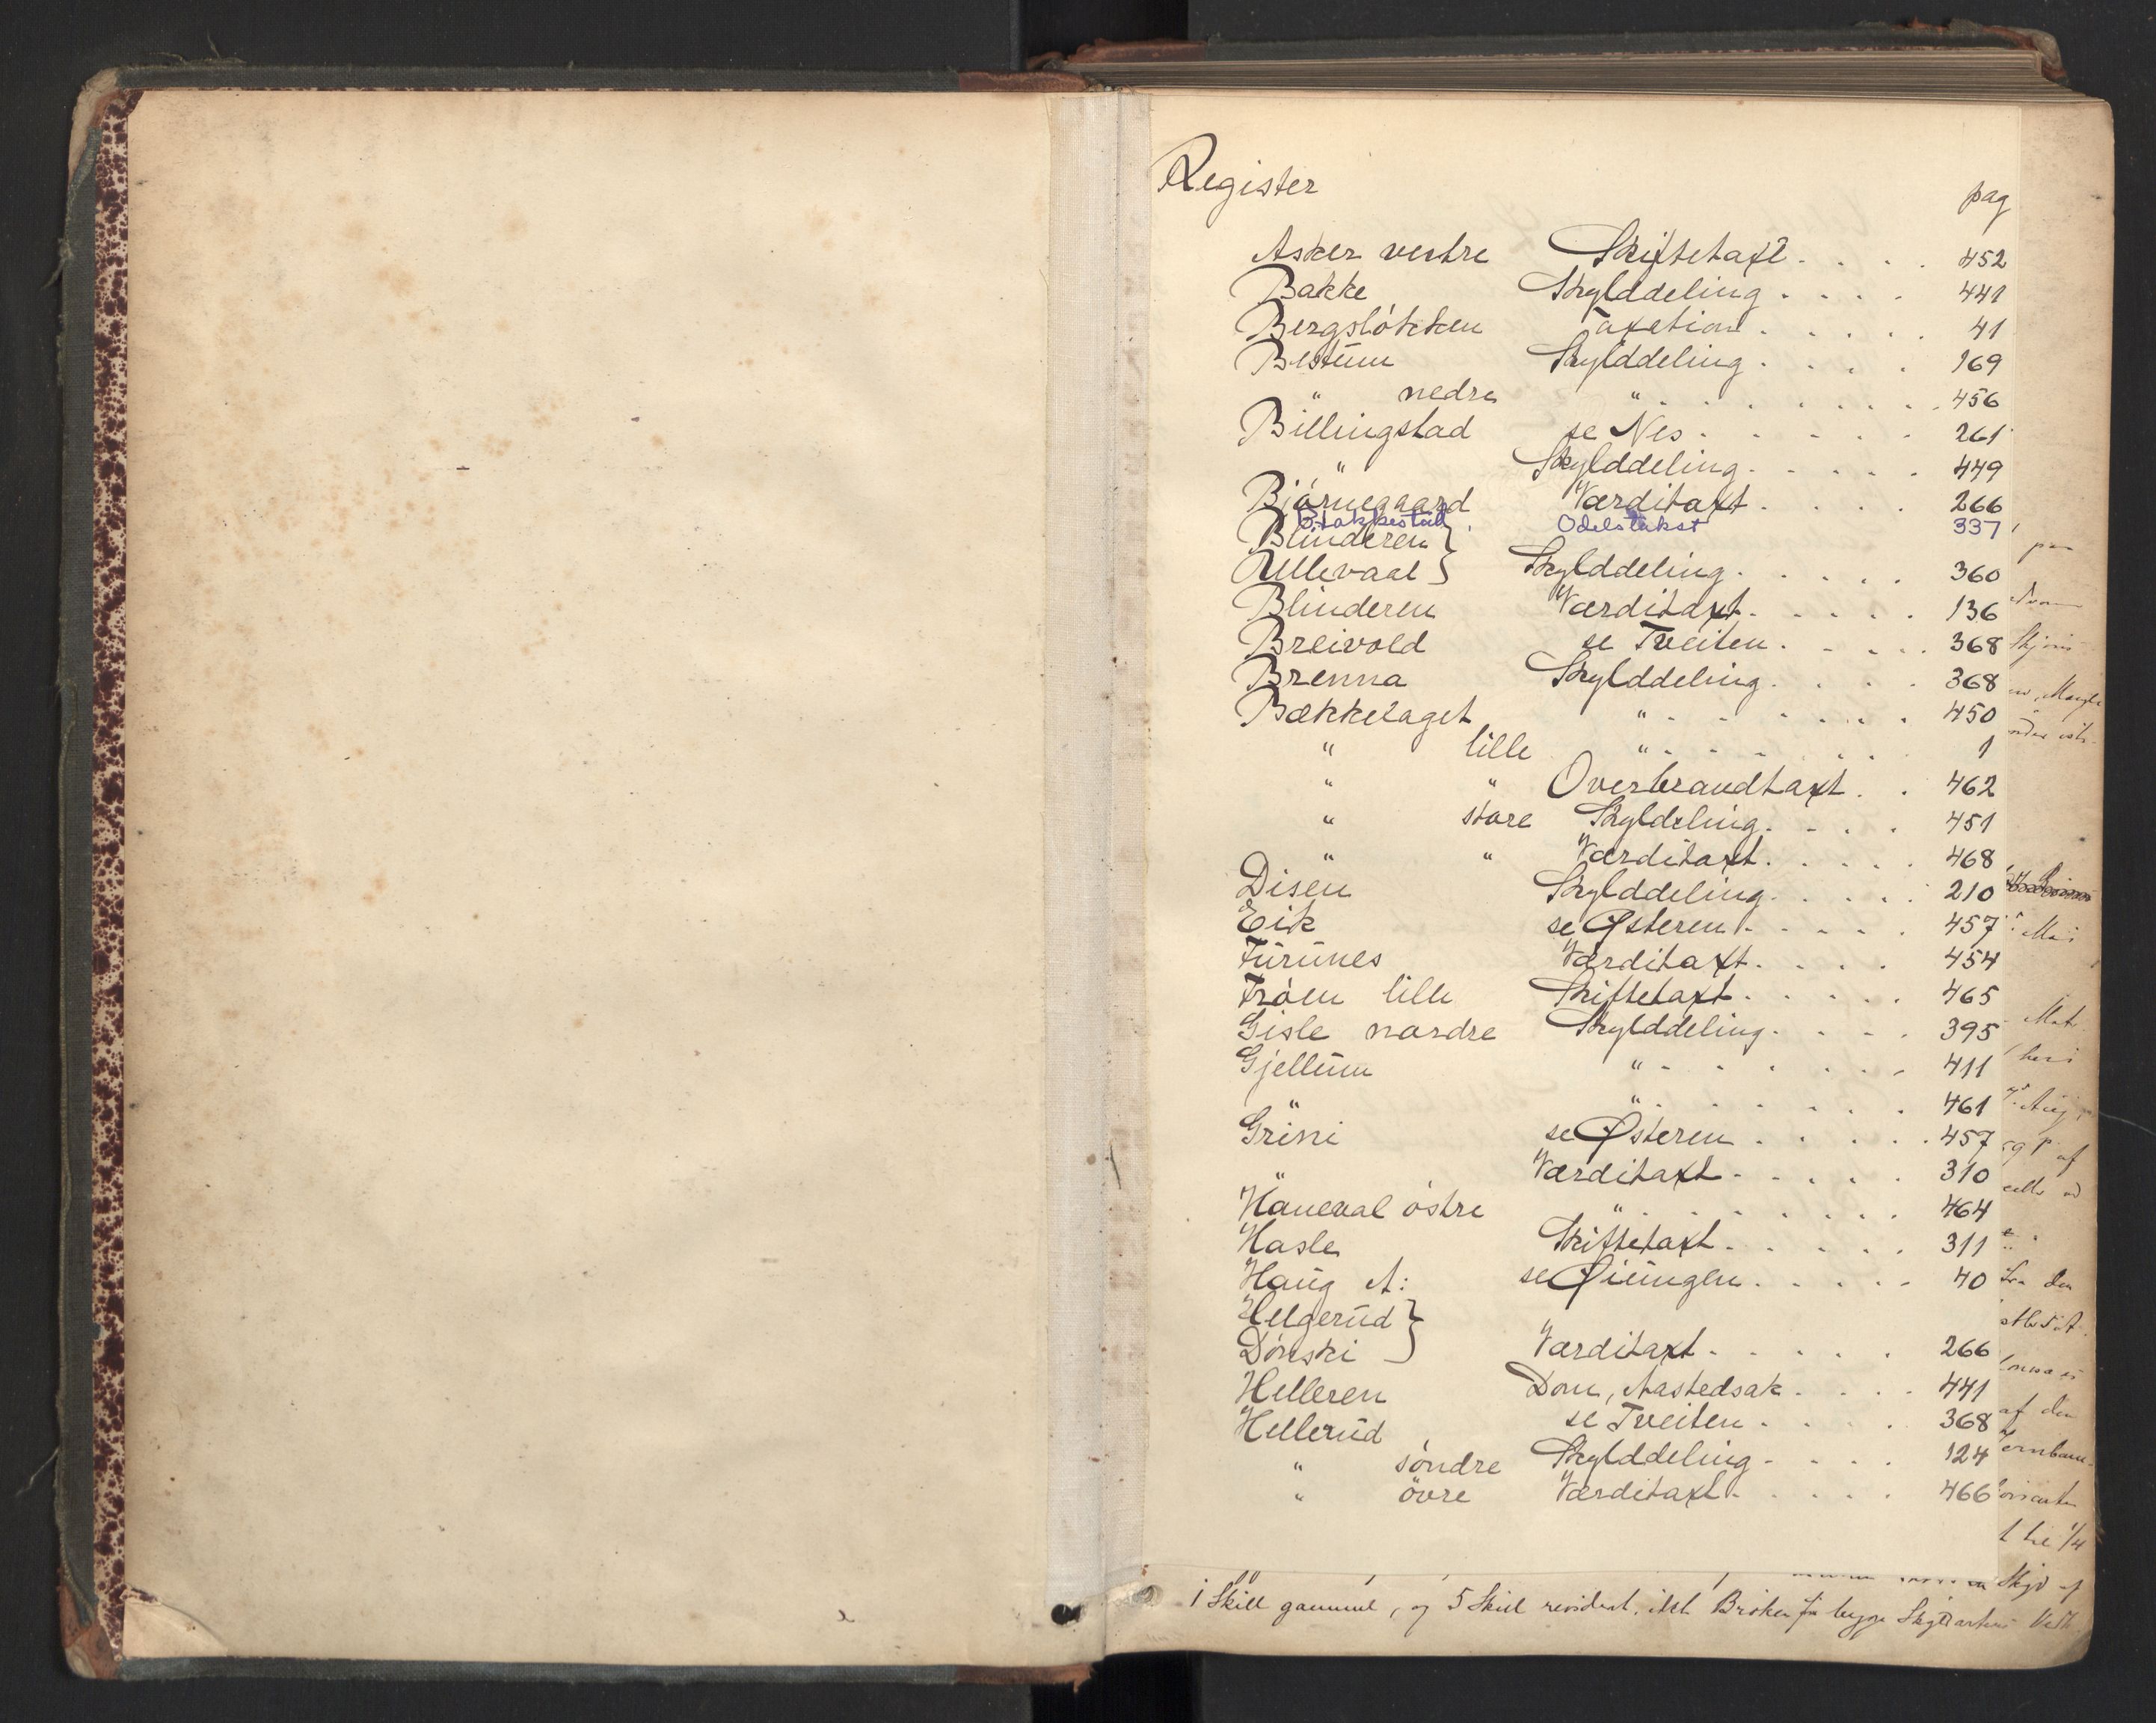 Register
pag
Asker vestre Skiftetaxt. . . . 452
Bakke Skylddeling . . . . 441
Bergsløkken Taxation . . . . . 41
Bestum Skylddeling . . . . 169
" nedre " . . . . . . . . 456
Billingstad se Nes . . . . . 261
" Skylddeling . . . . . 449
Bjørnegaard Værditaxt . . . . 266
B. takkestad Odelstakst 337
Blinderen }
Ullevaal } Skylddeling . . . . . 360
Blinderen Værditaxt . . . . . 136
Breivold se Tveiten . . . . . 368
Brenna Skylddeling . . . . 368
Bækkelaget " . . . . . . . 450
" lille " . . . . . . . 1
" " Overbrandtaxt . . 462
" store Skyldeling . . . . 451
" " Værditaxt . . . . . 468
Disen Skylddeling . . . . . 210
Eik se Østeren . . . . . 457
Furunes Værditaxt . . . . 454
Frøen lille Skiftetaxt . . . . . 465
Gisle nordre Skylddeling . . . . 395
Gjellum " . . . . . . . 411
" " . . . . . . . 461
Grini se Østeren . . . . . 457
" Værditaxt . . . . . 310
Haneval østre " . . . . . . . . 464
Hasle Skiftetaxt . . . . . 311
Haug A: se Øiungen . . . . . 40
Helgerud }
Dønski } Værditaxt . . . . . 266
Helleren Dom, Aastedsak . . . . 441
Hellerud se Tveiten . . . . 368
" søndre Skylddeling . . . . 124
" øvre Værditaxt . . . . . 466
af den
1 Skill gammel, og 5 Skill revideret. idet Brøken for begge Skyldarter